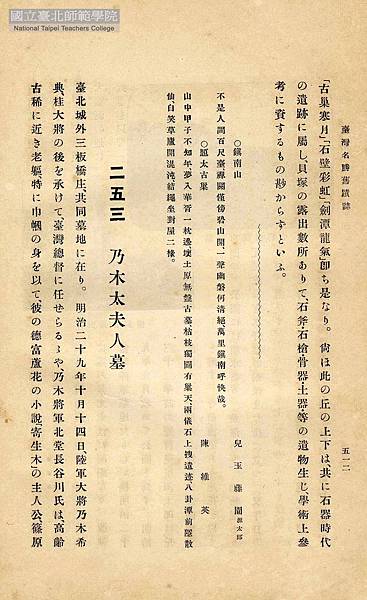 國立臺北師範學院
National Taipei Teachers College
臺灣名勝舊蹟誌
五一二
「古巢寒月」「石壁彩虹」「劍潭龍氣」卽ち是なり。尙ほ此の丘の上下は共に石器時代
の遺跡に屬し、貝塚の露出數所ありて、石斧・石槍骨器・土器・等の遺物生じ學術上參
考に資するもの尠からずといふ。
○鎭南山
兒玉藤園源太郎
不是人間百尺臺、禪關僅傍碧山開、一聲幽磐何淸絕、萬里鎭南呼快哉。
○題太古巢
陳維英
山中甲子不知年、夢入華胥一枕邊、壞土原無盤古墓、枯枝獨闢有巢天、兩儀石上搜遺迹、八卦潭前隱散
仙、自笑草廬開混沌、結繩坐對屋三椽。
二五三 乃木太夫人墓
臺北城外三板橋庄共同墓地に在り。明治二十九年十月十四日陸軍大將乃木希
典桂大將の後を承けて臺灣總督に任せらるゝや乃木將軍北堂長谷川氏は高齡
古稀に近き老軀特に巾幗の身を以て彼の德富蘆花の小說寄生木」の主人公篠原